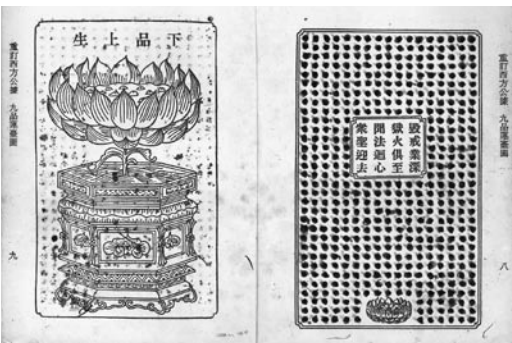 重訂西方公據 九品蓮臺圖 八
毀戒業深
獄火俱至
聞法迴心
衆聖迎去
下品上生
重訂西方公據 九品蓮臺圖 九